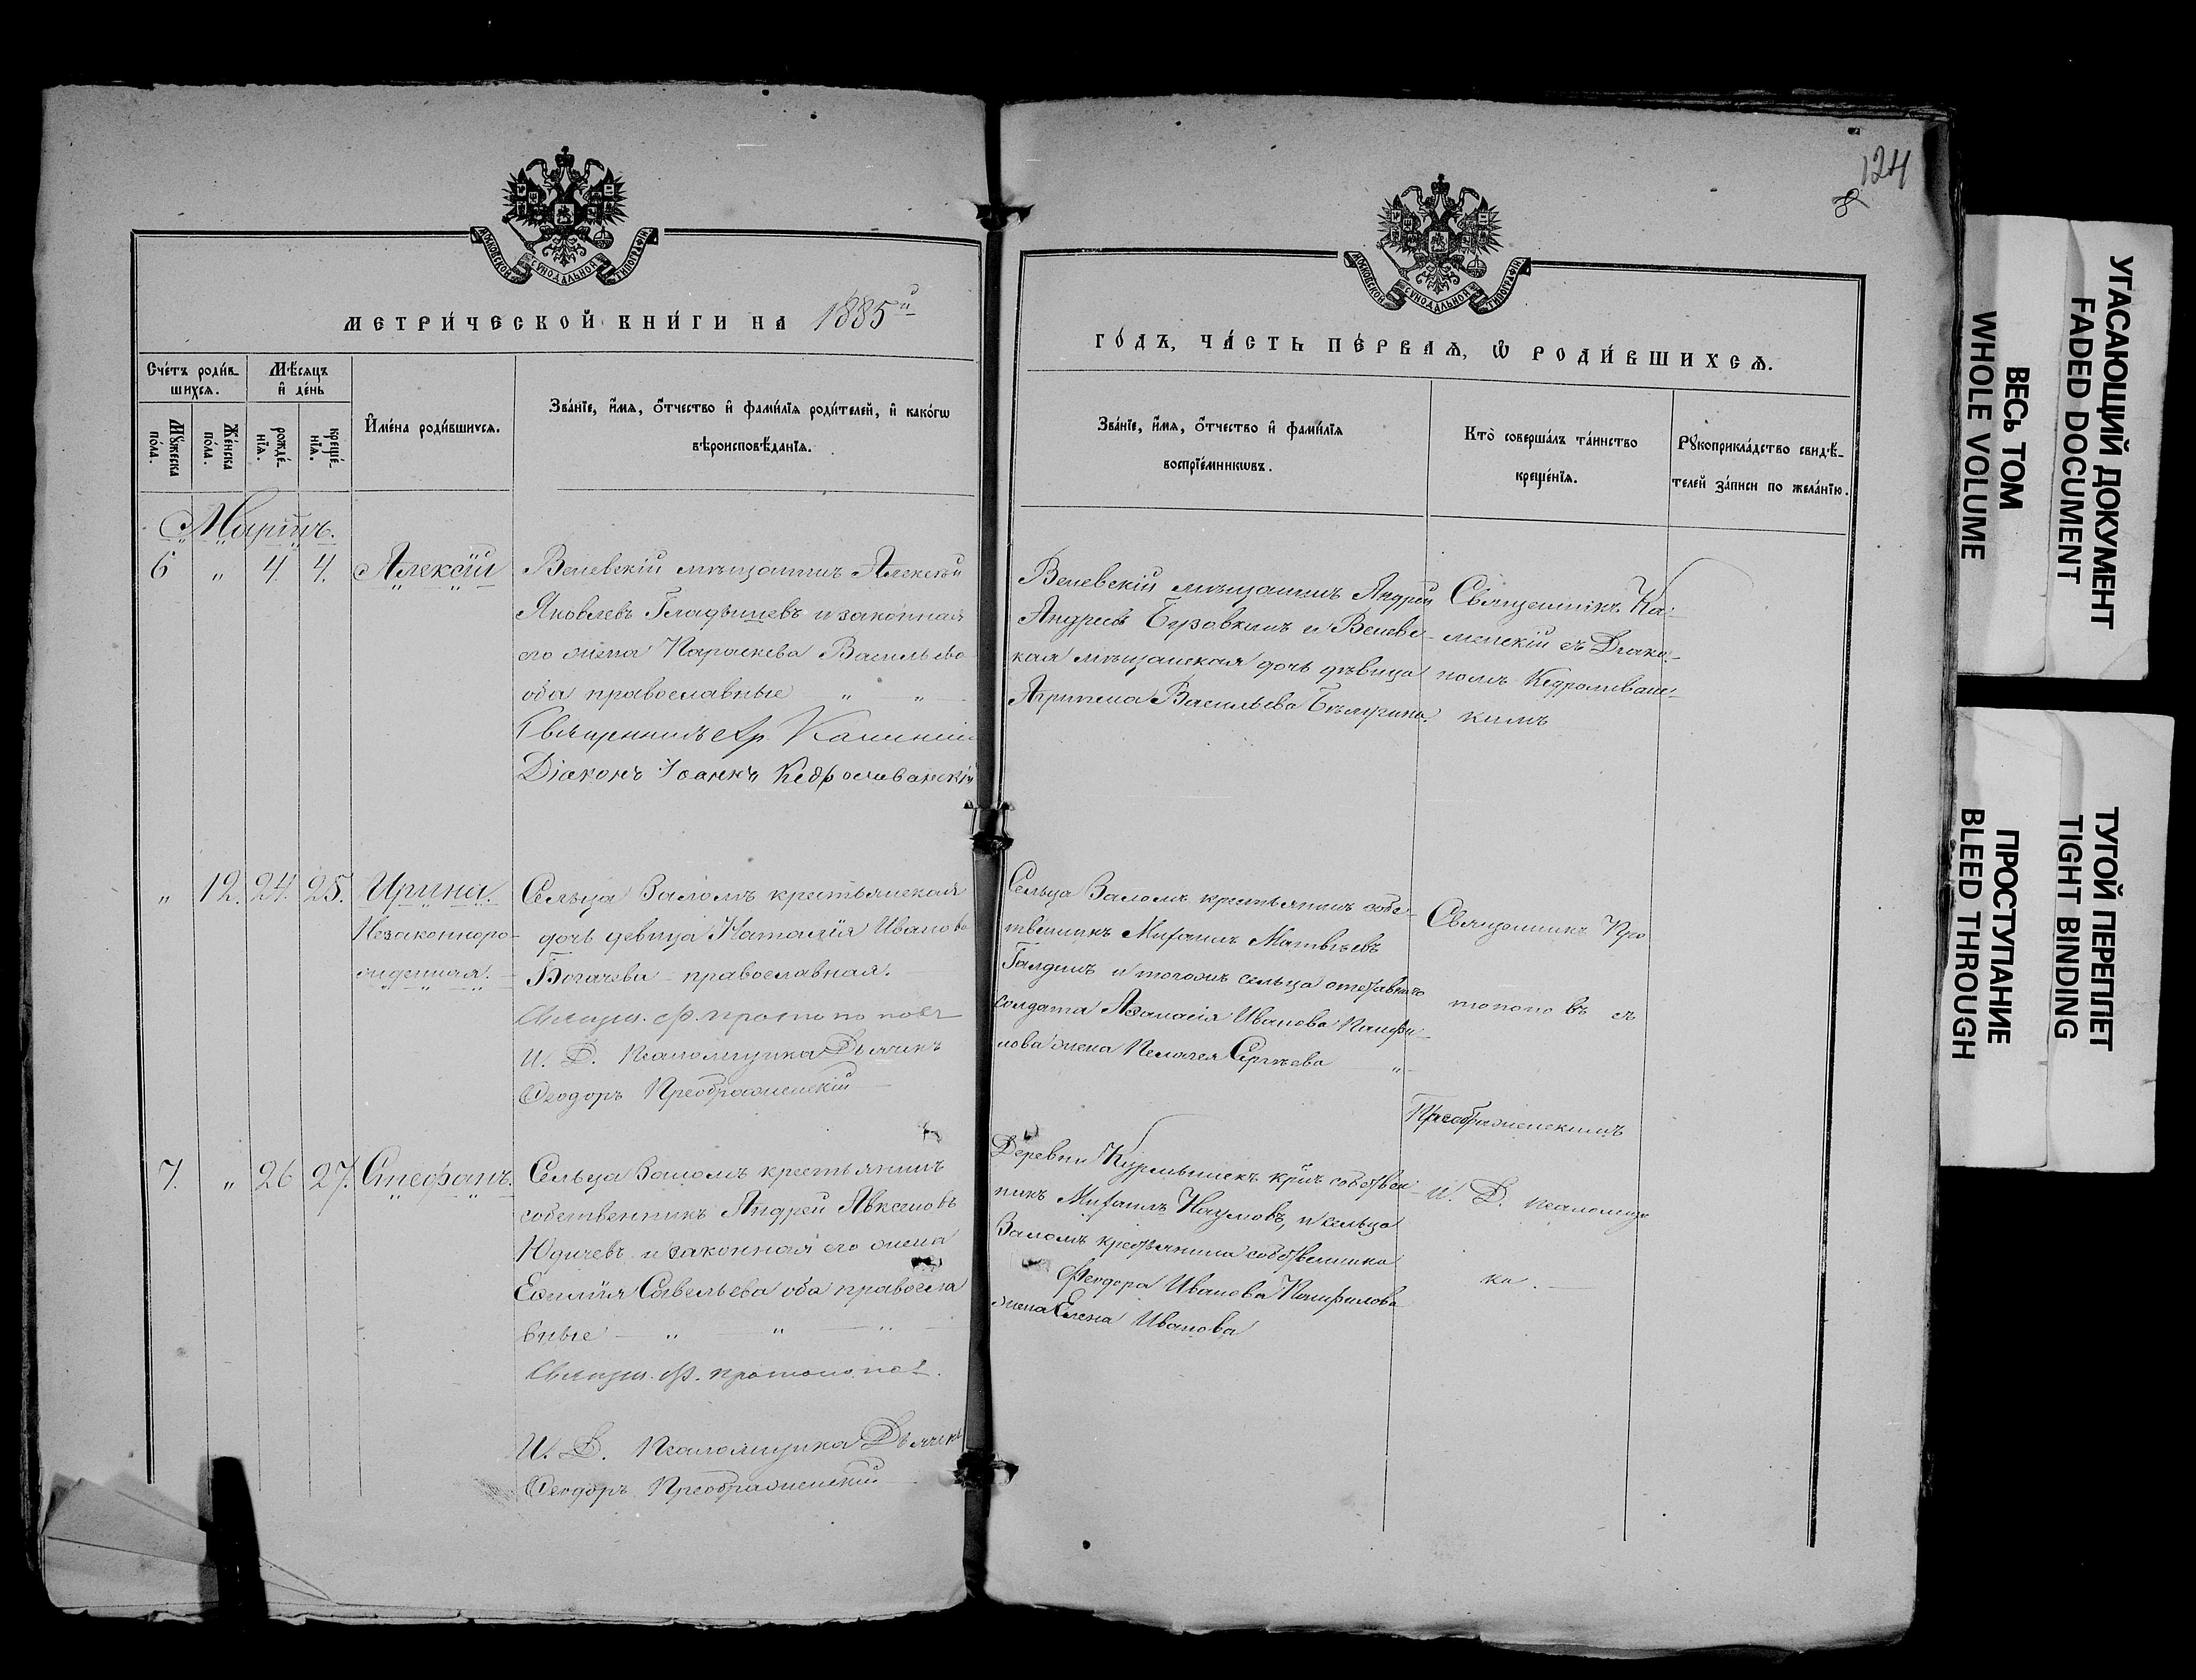 МОСКОВСКОЙ СѴНОДАЛЬНОЙ ТИПОГРАФІИ
МЕТРИ́ЧЕСКОЙ КНИ́ГИ НА 1885й
Сче́тъ роди́в-
шихсѧ.
Мѣ́сѧцъ
и҆ де́нь
Мꙋ́жеска
по́ла.
Же́нска
по́ла.
рожде́-
нїѧ.
креще́-
нїѧ.
И҆мена̀ роди́вшихсѧ.
Зва́нїе, и҆́мѧ, ѻ҆́тчество и҆ фами́лїѧ роди́телей, и҆ како́гѡ
вѣроисповѣ́данїѧ.
Мартъ.
6 „ 4. 4. Алексій
Веневскій мѣщанинъ Алексѣй
Яковлевъ Гладышевъ и законная
его жена Параскева Васильева
оба православные „ „
Священникъ Каменскій
Діаконъ Іоаннъ Кедроливанскій
„ 12. 24. 25. Ирина.
Незаконноро-
жденная.
Сельца Заломъ крестьянская
дочь девица Наталія Иванова
Богачева православная.
Священ. Ф. Протопоповъ
И. Д. Псаломщика Дьячекъ
Феодоръ Преображенскій
7. „ 26 27. Стефанъ.
Сельца Заломъ крестьянинъ
собственникъ Андрей Авксеновъ
Юдичевъ и законная его жена
Савельева оба правосла
вные „ „ „
Священ. Ф. Протопоповъ.
И. Д. Псаломщика Дьячекъ
Феодоръ Преображенскій
124
МОСКОВСКОЙ СѴНОДАЛЬНОЙ ТИПОГРАФІИ
ГО́ДЪ, ЧА́СТЬ ПЕ́РВАѦ, Ѡ҆ РОДИ́ВШИХСѦ.
Зва́нїе, и҆́мѧ, ѻ҆́тчество и҆ фами́лїѧ
воспрїе́мникѡвъ.
Кто̀ соверша́лъ та́инство
креще́нїѧ.
Рꙋкоприкла́дство свидѣ́-
телей за́писи по жела́нїю.
Веневскій мѣщанинъ Андрей
Андреевъ и Веневс-
кая мѣщанская дочь дѣвица
Агрипена Васильева
Священникъ Ка-
менскій съ Діако-
номъ Кедроливанс-
кимъ
Сельца Заломъ крестьянинъ собс-
твенникъ Михаилъ Матвѣевъ
Галдинъ и тогожъ сельца отставнаго
солдата Афанасія Иванова Панфи-
лова жена Пелагея Сергѣева „
Священникъ Про
топоповъ съ
Преображенскимъ
И. Д. псаломщи
ка.
Деревни кр̃нъ собствен-
никъ Михаилъ Наумовъ, и сельца
Заломъ крестьянина собственника
Феодора Иванова Панфилова
жена Елена Иванова
УГАСАЮЩИЙ ДОКУМЕНТ
FADED DOCUMENT
ВЕСЬ ТОМ
WHOLE VOLUME
ТУГОЙ ПЕРЕПЛЕТ
TIGHT BINDING
ПРОСТУПАНИЕ
BLEED THROUGH